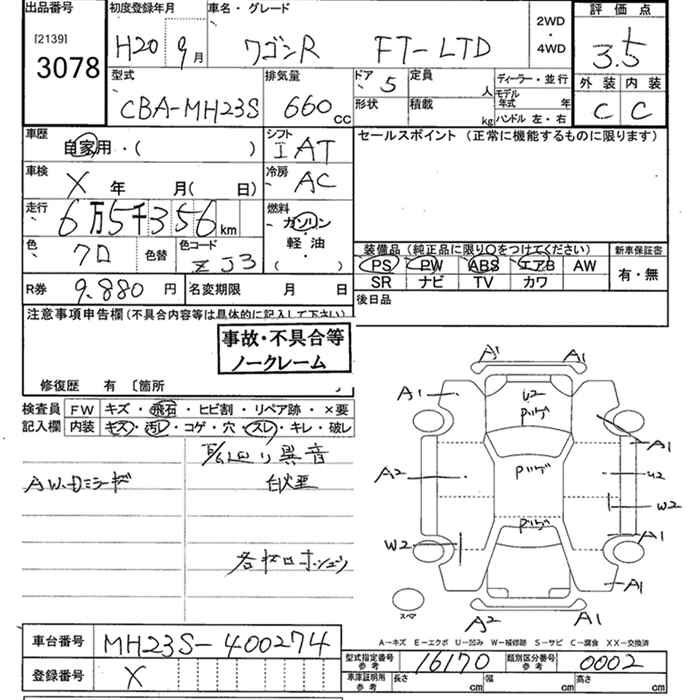 出品番号 初度登録年月 車名・グレード 2WD・4WD 評価点
[2139] 3078 H20 9月 ワゴンR FT-LTD 3.5
型式 排気量 ドア 5 定員 人 ディーラー・並行 外装 内装
CBA-MH23S 660cc 形状 積載 kg モデル年式 年 ハンドル 左・右 C C
車歴 自家用・( ) シフト IAT セールスポイント (正常に機能するものに限ります)
車検 X 年 月( 日) 冷房 AC
走行 6万5千356km 燃料 ガソリン・軽油・( )
色 クロ 色替 色コード ZJ3
装備品(純正品に限り○をつけてください) 新車保証書
PS PW ABS エアB AW 有・無
SR ナビ TV カワ
R券 9.880円 名変期限 月 日 後日品
注意事項申告欄(不具合内容等は具体的に記入して下さい)
事故・不具合等
ノークレーム
修復歴 有 〔箇所
検査員 FW キズ・飛石・ヒビ割・リペア跡・×要
記入欄 内装 キズ・汚レ・コゲ・穴・スレ・キレ・破レ
異音
A1 A1
A1 U2 A1
A2 U2
W2
W2 A1
A1
A2 A1
スペア
A─キズ E─エクボ U─凹み W─補修跡 S─サビ C─腐食 XX─交換済
車台番号 MH23S-400274
登録番号 X
型式指定番号 参考 16170 類別区分番号 参考 0002
車庫証明用 参考 長さ cm 幅 cm 高さ cm